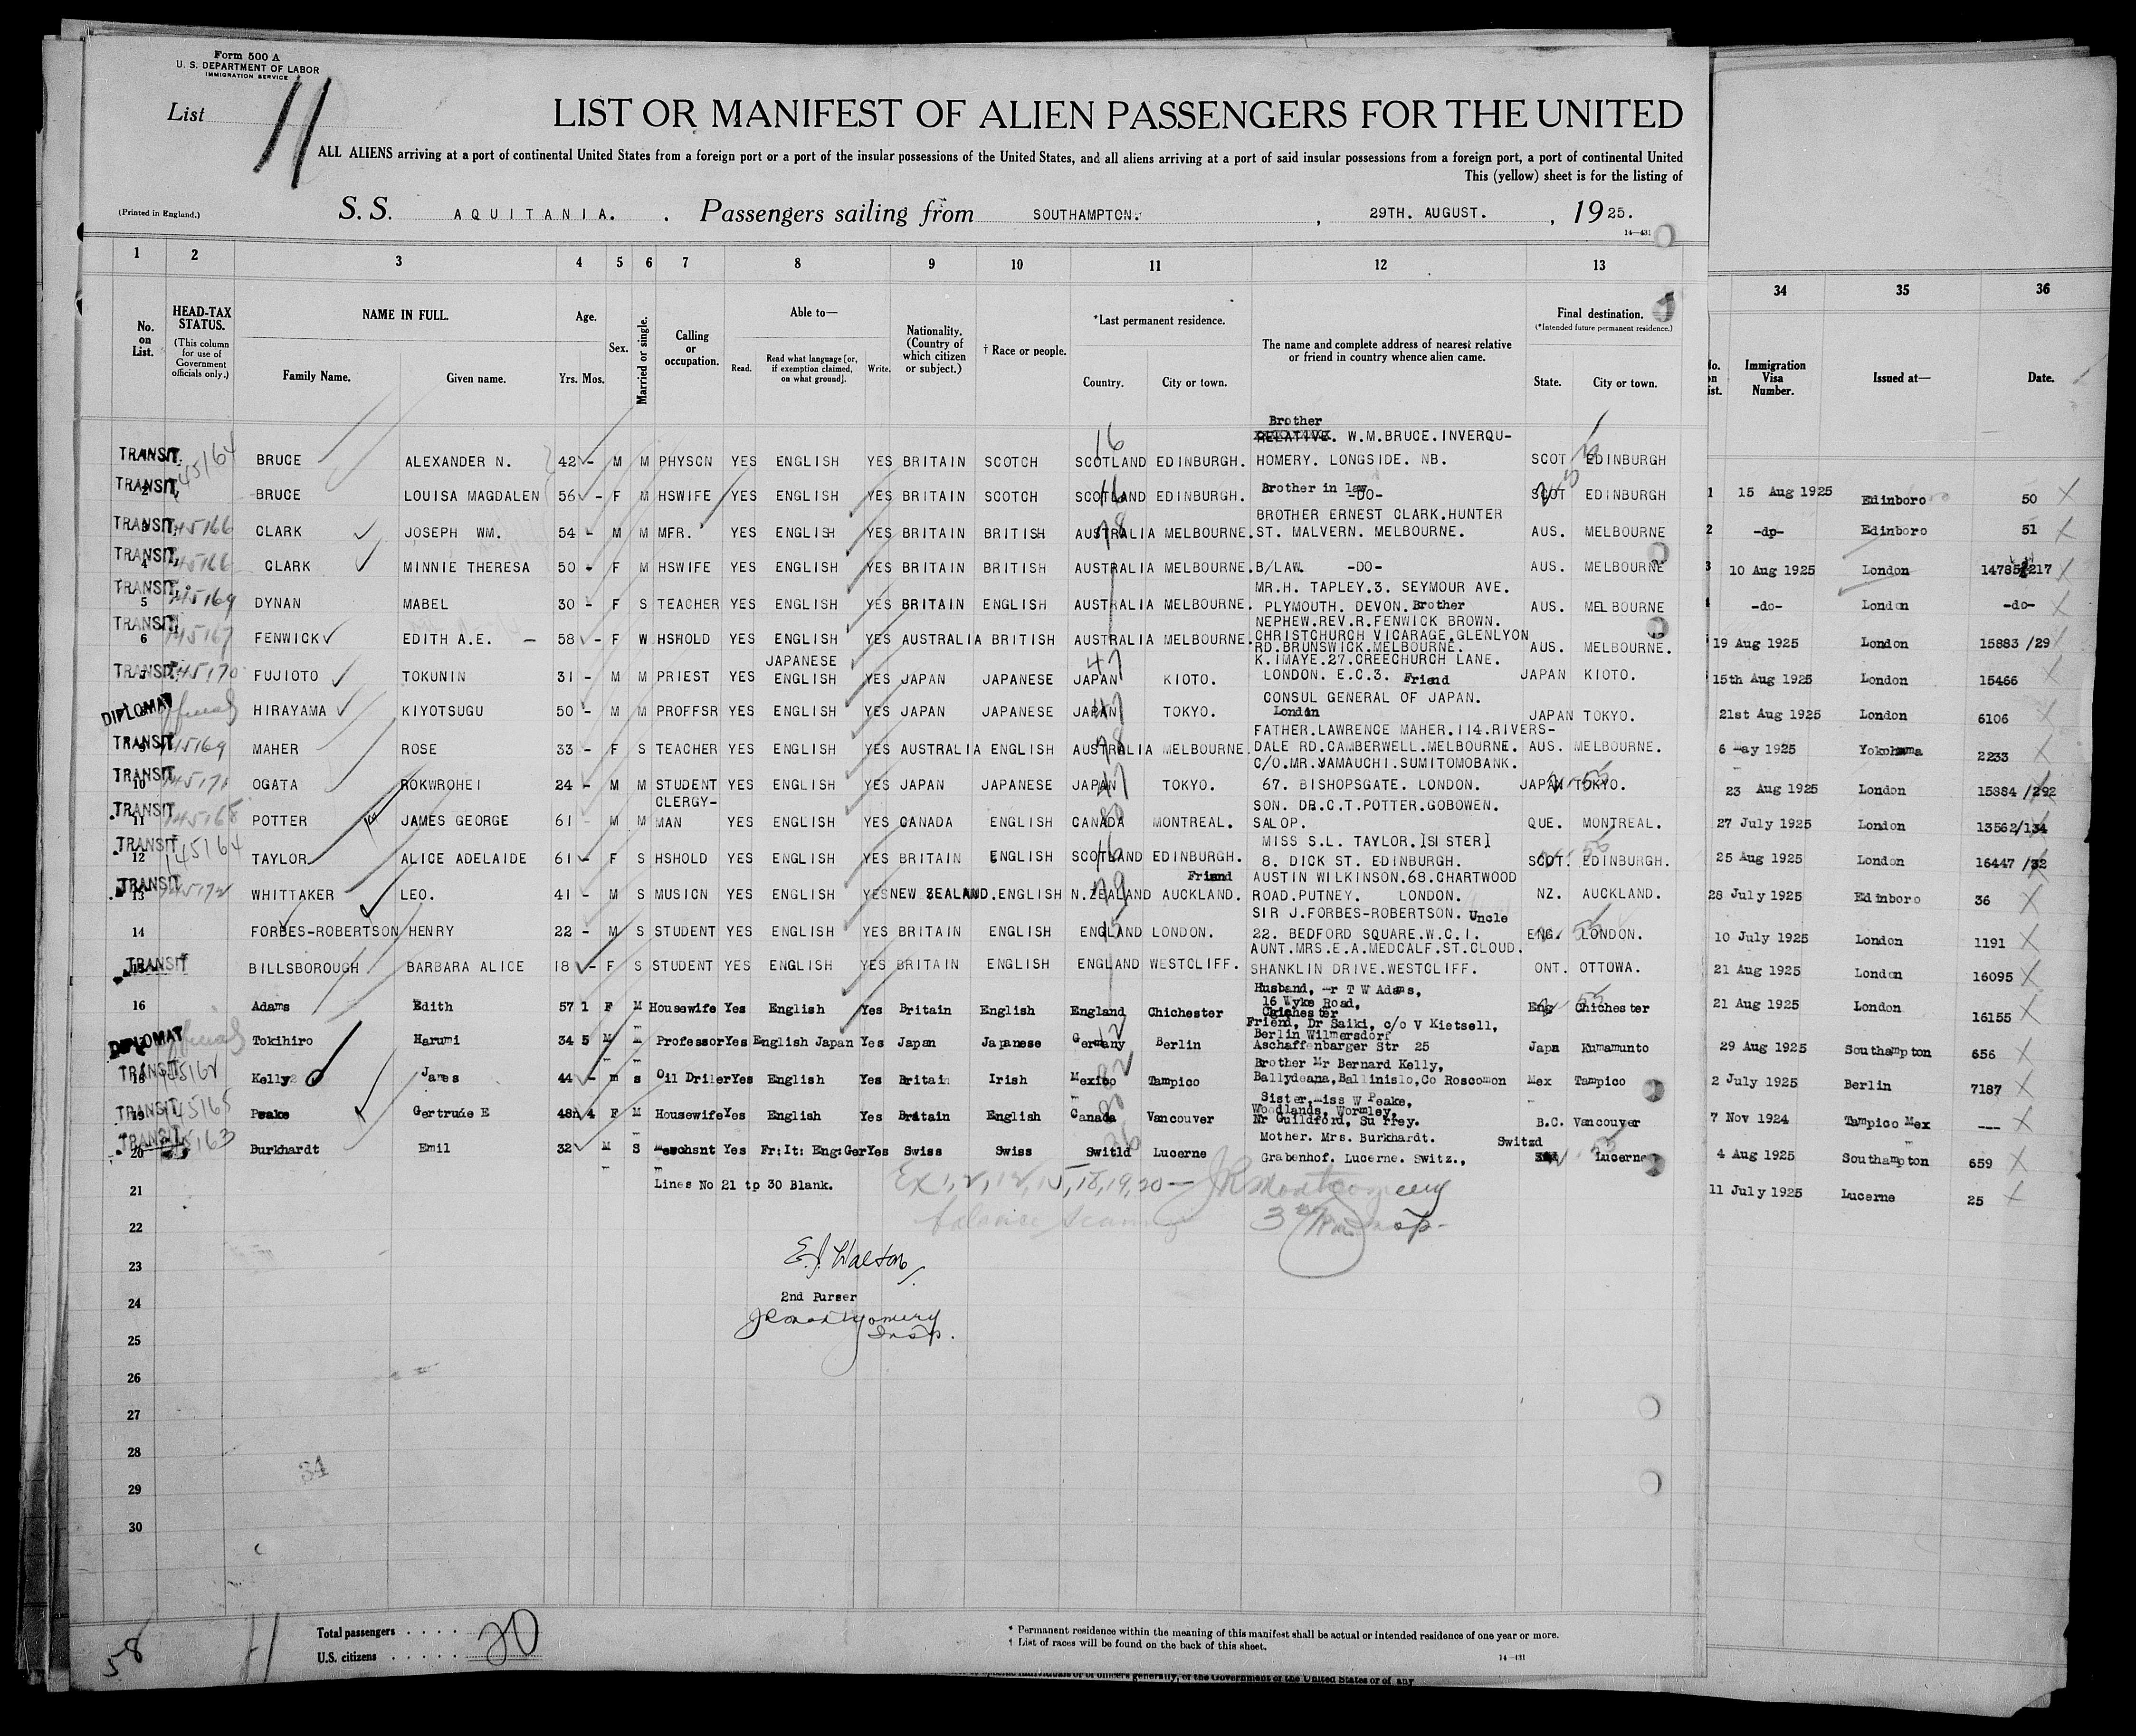 Form 500 A
U. S. DEPARTMENT OF LABOR
IMMIGRATION SERVICE
List 11
LIST OR MANIFEST OF ALIEN PASSENGERS FOR THE UNITED
ALL ALIENS arriving at a port of continental United States from a foreign port or a port of the insular possessions of the United States, and all aliens arriving at a port of said insular possessions from a foreign port, a port of continental United
This (yellow) sheet is for the listing of
(Printed in England.)
S. S. AQUITANIA. Passengers sailing from SOUTHAMPTON. , 29TH. AUGUST. , 1925.
14—431
1 2 3 4 5 6 7 8 9 10 11 12 13
34 35 36
No. on List.
HEAD-TAX STATUS. (This column for use of Government officials only.)
NAME IN FULL.
Family Name. Given name.
Age. Yrs. Mos.
Sex.
Married or single.
Calling or occupation.
Able to—
Read. Read what language [or, if exemption claimed, on what ground]. Write.
Nationality. (Country of which citizen or subject.)
† Race or people.
*Last permanent residence.
Country. City or town.
The name and complete address of nearest relative or friend in country whence alien came.
Final destination. (*Intended future permanent residence.)
State. City or town.
Immigration Visa Number. Issued at— Date.
Brother
RELATIVE. W.M.BRUCE.INVERQU-
TRANSIT. 145164 BRUCE ALEXANDER N. 42 - M M PHYSCN YES ENGLISH YES BRITAIN SCOTCH SCOTLAND EDINBURGH. HOMERY. LONGSIDE. NB. SCOT EDINBURGH
TRANSIT, 2 BRUCE LOUISA MAGDALEN 56 - F M HSWIFE YES ENGLISH YES BRITAIN SCOTCH SCOTLAND EDINBURGH. Brother in law -DO- SCOT EDINBURGH
BROTHER ERNEST CLARK.HUNTER
TRANSIT, 3 145166 CLARK JOSEPH WM. 54 - M M MFR. YES ENGLISH YES BRITAIN BRITISH AUSTRALIA MELBOURNE. ST. MALVERN. MELBOURNE. AUS. MELBOURNE
TRANSIT, 4 145166 CLARK MINNIE THERESA 50 - F M HSWIFE YES ENGLISH YES BRITAIN BRITISH AUSTRALIA MELBOURNE. B/LAW. -DO- AUS. MELBOURNE
MR.H. TAPLEY.3. SEYMOUR AVE.
TRANSIT, 5 145169 DYNAN MABEL 30 - F S TEACHER YES ENGLISH YES BRITAIN ENGLISH AUSTRALIA MELBOURNE. PLYMOUTH. DEVON. Brother AUS. MELBOURNE
NEPHEW.REV.R.FENWICK BROWN.
TRANSIT, 6 145167 FENWICK EDITH A.E. — 58 - F W HSHOLD YES ENGLISH YES AUSTRALIA BRITISH AUSTRALIA MELBOURNE. CHRISTCHURCH VICARAGE.GLENLYON
RD.BRUNSWICK.MELBOURNE. AUS. MELBOURNE.
JAPANESE K.IMAYE.27.CREECHURCH LANE.
TRANSIT. 145170 FUJIOTO TOKUNIN 31 - M M PRIEST YES ENGLISH YES JAPAN JAPANESE JAPAN KIOTO. LONDON. E.C.3. Friend JAPAN KIOTO.
CONSUL GENERAL OF JAPAN.
DIPLOMAT official HIRAYAMA KIYOTSUGU 50 - M M PROFFSR YES ENGLISH YES JAPAN JAPANESE JAPAN TOKYO. London JAPAN TOKYO.
FATHER.LAWRENCE MAHER.114.RIVERS-
TRANSIT 9 145169 MAHER ROSE 33 - F S TEACHER YES ENGLISH YES AUSTRALIA ENGLISH AUSTRALIA MELBOURNE. DALE RD.CAMBERWELL.MELBOURNE. AUS. MELBOURNE.
C/O.MR.YAMAUCHI.SUMITOMOBANK.
TRANSIT 10 145171 OGATA ROKWROHEI 24 - M M STUDENT YES ENGLISH YES JAPAN JAPANESE JAPAN TOKYO. 67. BISHOPSGATE. LONDON. JAPAN TOKYO.
CLERGY- SON. DR.C.T.POTTER.GOBOWEN.
TRANSIT 11 145168 POTTER JAMES GEORGE 61 - M M MAN YES ENGLISH YES CANADA ENGLISH CANADA MONTREAL. SALOP. QUE. MONTREAL.
MISS S.L. TAYLOR.]SISTER]
TRANSIT 12 145164 TAYLOR ALICE ADELAIDE 61 - F S HSHOLD YES ENGLISH YES BRITAIN ENGLISH SCOTLAND EDINBURGH. 8. DICK ST. EDINBURGH. SCOT. EDINBURGH.
Friend AUSTIN WILKINSON.68.CHARTWOOD
TRANSIT 13 145172 WHITTAKER LEO. 41 - M S MUSICN YES ENGLISH YES NEW ZEALAND. ENGLISH N.ZEALAND AUCKLAND. ROAD.PUTNEY. LONDON. NZ. AUCKLAND.
SIR J.FORBES-ROBERTSON. Uncle
14 FORBES-ROBERTSON HENRY 22 - M S STUDENT YES ENGLISH YES BRITAIN ENGLISH ENGLAND LONDON. 22. BEDFORD SQUARE.W.C.I. ENG. LONDON.
AUNT.MRS.E.A.MEDCALF.ST.CLOUD.
TRANSIT 15 BILLSBOROUGH BARBARA ALICE 18 - F S STUDENT YES ENGLISH YES BRITAIN ENGLISH ENGLAND WESTCLIFF. SHANKLIN DRIVE.WESTCLIFF. ONT. OTTOWA.
Husband, mr T W Adams,
16 Adams Edith 57 1 F M Housewife Yes English Yes Britain English England Chichester 16 Wyke Road, Chichester Eng Chichester
Friend, Dr Saiki, c/o V Kietsell,
Berlin Wilmersdorf
DIPLOMAT official Tokihiro Harumi 34 5 M m Professor Yes English Japan Yes Japan Japanese Germany Berlin Aschaffenbarger Str 25 Japn Kumamunto
Brother Mr Bernard Kelly,
TRANSIT 18 145162 Kelly James 44 - m s Oil Driler Yes English Yes Britain Irish Mexico Tampico Ballydeana,Ballinislo,Co Roscomon Mex Tampico
Sister,miss W Peake,
Woodlands, Wormley,
TRANSIT 19 145165 Peake Gertrude E 48 4 F M Housewife Yes English Yes Britain English Canada Vancouver Nr Guildford, Surrey. B.C. Vancouver
Mother. Mrs. Burkhardt. Switzd
TRANSIT 20 145163 Burkhardt Emil 32 M S Merchsnt Yes Fr: It: Eng: Ger Yes Swiss Swiss Switld Lucerne Grabenhof. Lucerne. Switz., Lucerne
21 Lines No 21 tp 30 Blank. Ex 1, 2, 12, 15, 18, 19, 20 — JR Montgomery
22
23 E.J. Walton
24 2nd Purser
JR Montgomery
25 Insp.
26
27
28
29
30
34
1 15 Aug 1925 Edinboro 50
2 -dp- Edinboro 51
3 10 Aug 1925 London 14785/217
-do- London -do-
19 Aug 1925 London 15883 /29
15th Aug 1925 London 15466
21st Aug 1925 London 6106
6 may 1925 Yokohama 2233
23 Aug 1925 London 15884 /292
27 July 1925 London 13562/134
25 Aug 1925 London 16447 /32
28 July 1925 Edinboro 36
10 July 1925 London 1191
21 Aug 1925 London 16095
21 Aug 1925 London 16155
29 Aug 1925 Southampton 656
2 July 1925 Berlin 7187
7 Nov 1924 Tampico Mex ---
4 Aug 1925 Southampton 659
11 July 1925 Lucerne 25
58 11
Total passengers . . . . 20
U.S. citizens . . . . .
* Permanent residence within the meaning of this manifest shall be actual or intended residence of one year or more.
† List of races will be found on the back of this sheet.
14—431